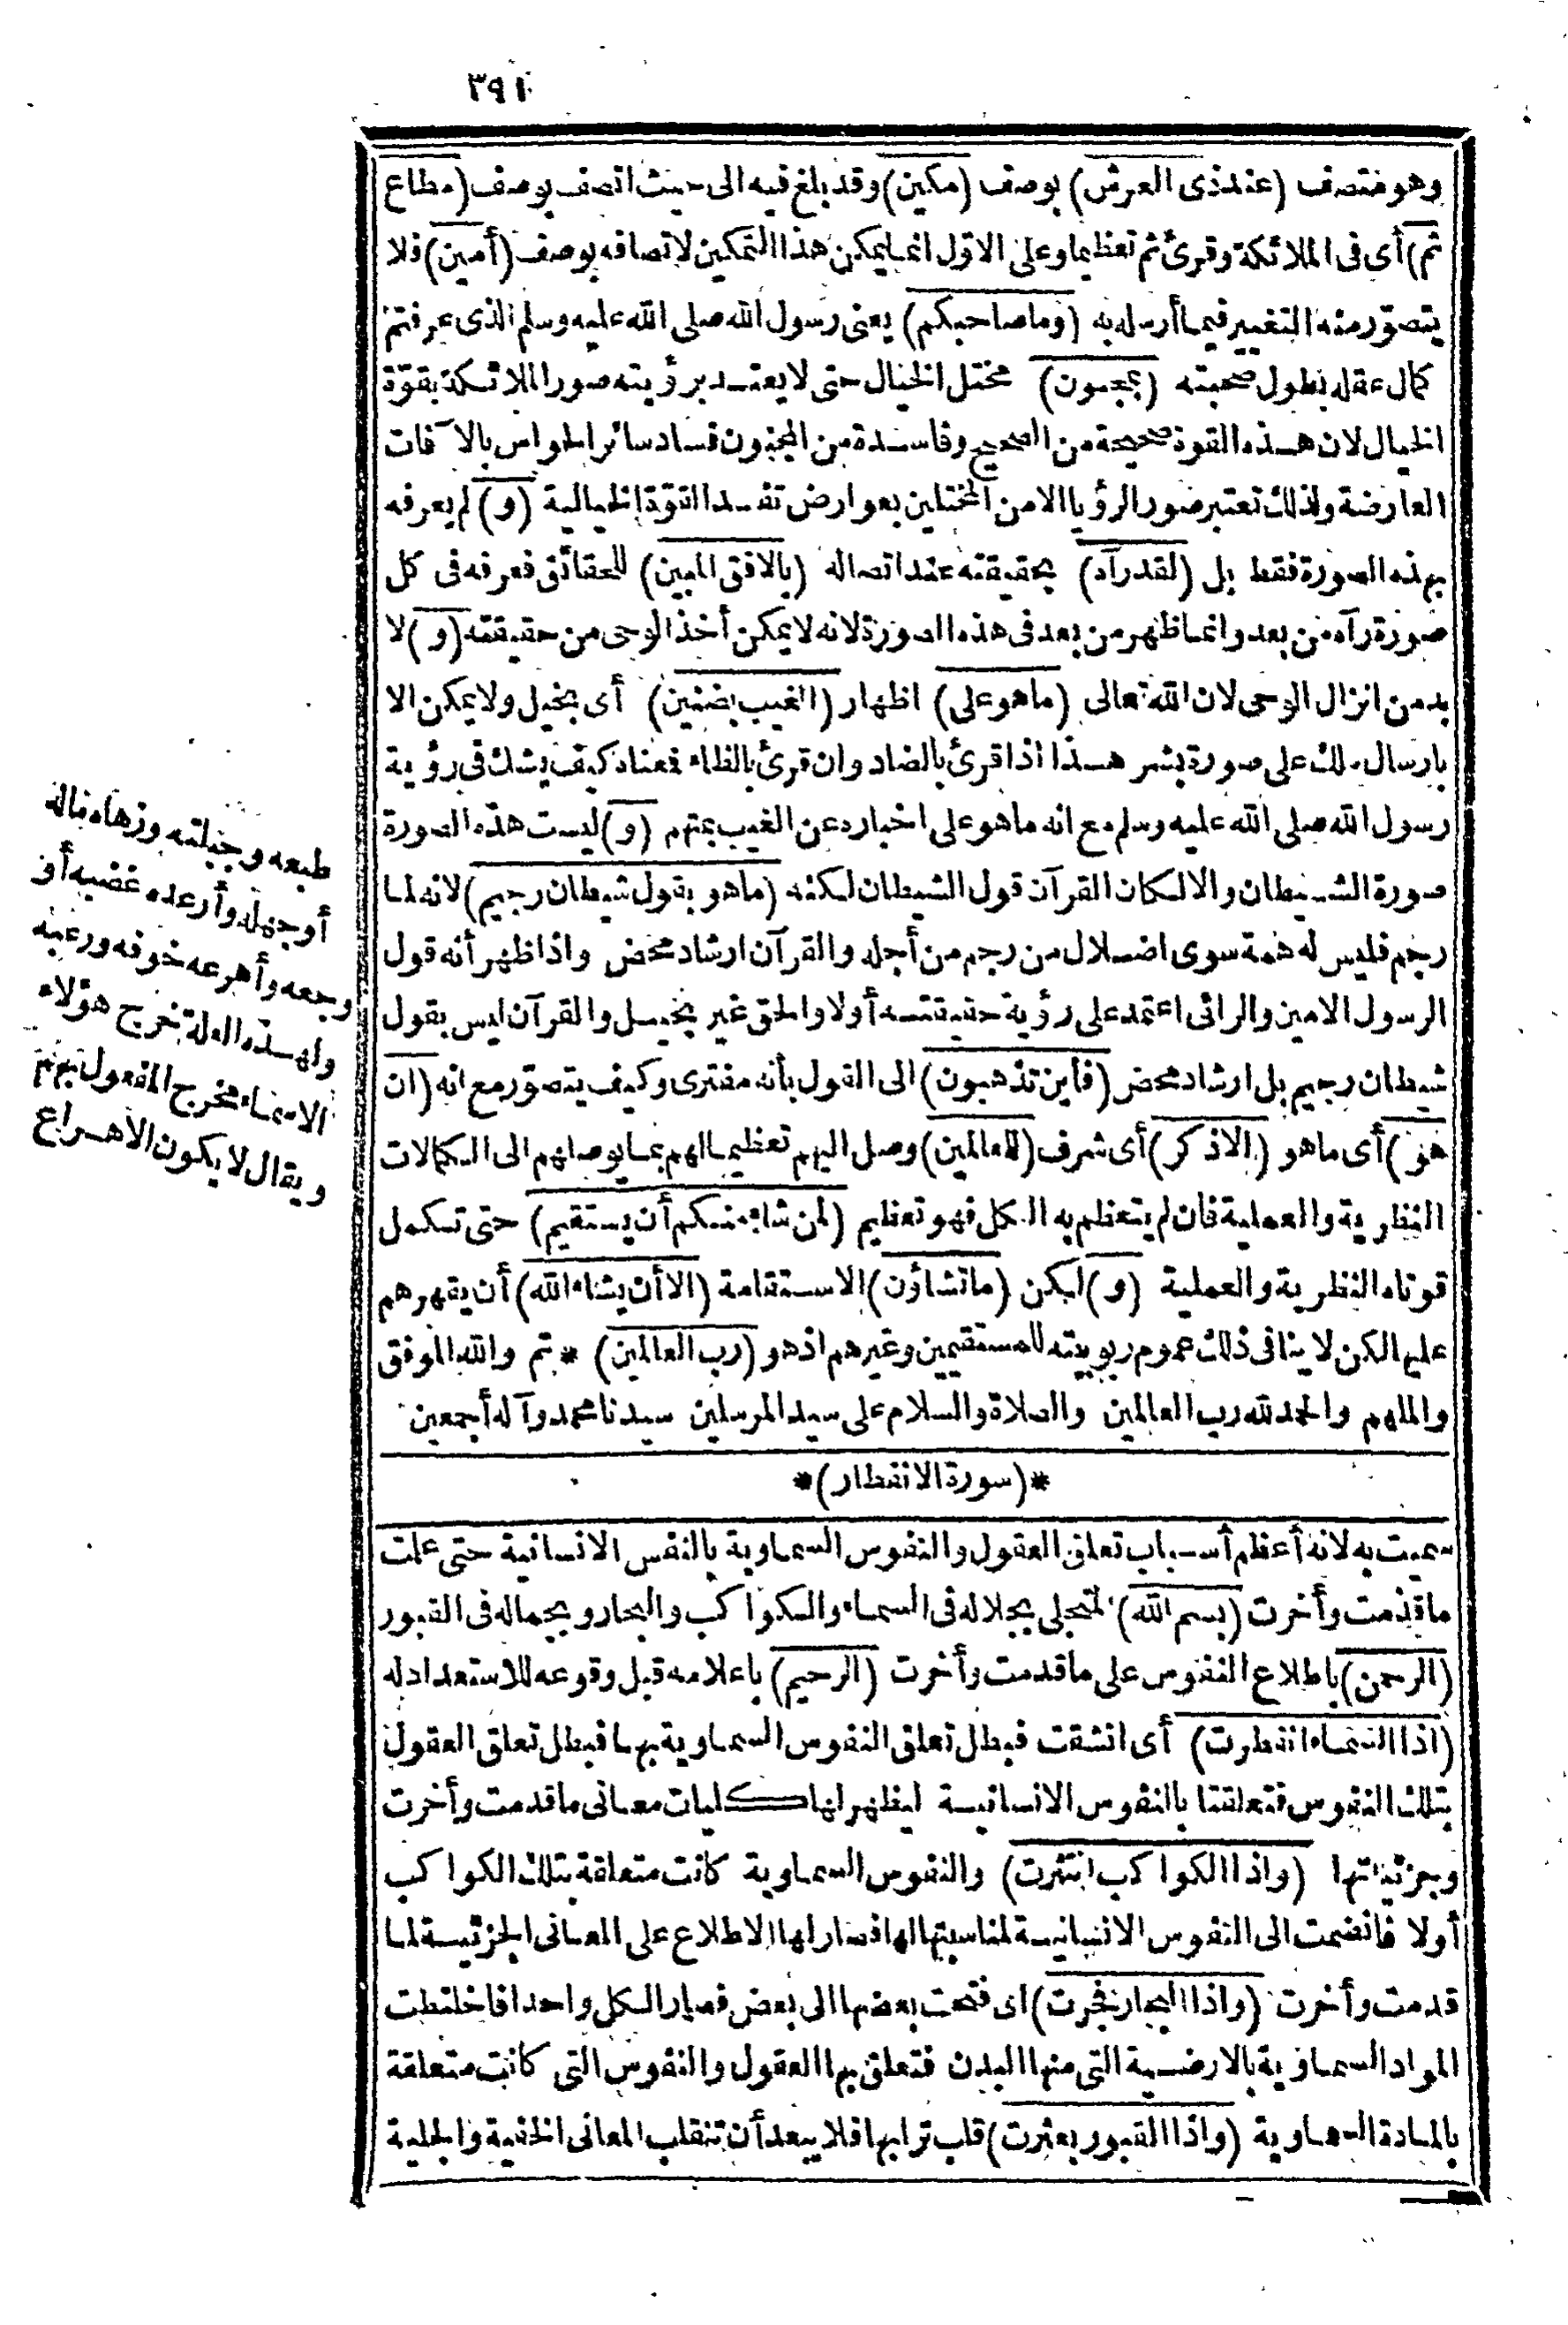 ٣٩١
وهو متصف (عند ذى العرش) بوصف (مكين) وقد بلغ فيه الى حيث اتصف بوصف (مطاع
ثم) أى فى الملائكة وقرئ ثم تعظيما وعلى الاوّل انما يمكن هذا التمكين لاتصافه بوصف (أمين) فلا
يتصوّر منه التغيير فيما أرسل به (وما صاحبكم) يعنى رسول الله صلى الله عليه وسلم الذى عرفتم
كمال عقله بطول صحبته (بمجنون) مختل الخيال حتى لا يعتد برؤيته صور الملائكة بقوّة
الخيال لان هذه القوة صحيحة من الصحيح وفاسدة من المجنون فساد سائر الحواس بالآفات
العارضة ولذلك تعتبر صور الرؤيا الا من المختلين بعوارض تفسد القوّة الخيالية (و) لم يعرفه
بهذه الصورة فقط بل (لقد رآه) بحقيقته عند اتصاله (بالافق المبين) للحقائق فعرفه فى كل
صورة رآه من بعد وانما ظهر من بعد فى هذه الصورة لانه لا يمكن أخذ الوحى من حقيقته (و) لا
بد من انزال الوحى لان الله تعالى (ما هو على) اظهار (الغيب بضنين) أى بخيل ولا يمكن الا
بارسال ملك على صورة بشر هذا اذا قرئ بالضاد وان قرئ بالظاء فمعناه كيف يشك فى رؤية
رسول الله صلى الله عليه وسلم مع انه ما هو على اخباره عن الغيب بمتهم (و) ليست هذه الصورة
صورة الشيطان والا لكان القرآن قول الشيطان لكنه (ما هو بقول شيطان رجيم) لانه لما
رجم فليس له همة سوى اضلال من رجم من أجله والقرآن ارشاد محض واذا ظهر أنه قول
الرسول الامين والرائى اعتمد على رؤية حقيقته أولا والحق غير بخيل والقرآن ليس بقول
شيطان رجيم بل ارشاد محض (فأين تذهبون) الى القول بأنه مفترى وكيف يتصوّر مع انه (ان
هو) أى ما هو (الا ذكر) أى شرف (للعالمين) وصل اليهم تعظيما لهم بما يوصلهم الى الكمالات
النظرية والعملية فان لم يتعظم به الكل فهو تعظيم (لمن شاء منكم أن يستقيم) حتى تكمل
قوتاه النظرية والعملية (و) لكن (ما تشاؤن) الاستقامة (الا أن يشاء الله) أن يقهرهم
عليها لكن لا ينافى ذلك عموم ربوبيته للمستقيمين وغيرهم اذ هو (رب العالمين) * تم والله الموفق
والملهم والحمد لله رب العالمين والصلاة والسلام على سيد المرسلين سيدنا محمد وآله أجمعين
*(سورة الانفطار)*
سميت به لانه أعظم أسباب تعلق العقول والنفوس السماوية بالنفس الانسانية حتى علمت
ما قدمت وأخرت (بسم الله) المتجلى بجلاله فى السماء والكواكب والبحار وبجماله فى القبور
(الرحمن) باطلاع النفوس على ما قدمت وأخرت (الرحيم) باعلامه قبل وقوعه للاستعداد له
(اذا السماء انفطرت) أى انشقت فبطل تعلق النفوس السماوية بها فبطل تعلق العقول
بتلك النفوس فتعلقتا بالنفوس الانسانية ليظهر لها كليات معانى ما قدمت وأخرت
وجزئياتها (واذا الكواكب انتثرت) والنفوس السماوية كانت متعلقة بتلك الكواكب
أولا فانضمت الى النفوس الانسانية لمناسبتها لها اذ صار لها الاطلاع على المعانى الجزئية لما
قدمت وأخرت (واذا البحار فجرت) اى فتحت بعضها الى بعض فصار الكل واحدا فاختلطت
المواد السماوية بالارضية التى منها البدن فتعلق بها العقول والنفوس التى كانت متعلقة
بالمادة السماوية (واذا القبور بعثرت) قلب ترابها فلا يبعد أن تنقلب المعانى الخفية والجلية
طبعه وجبلته وزهاه ماله
أو جهله وأرعده غضبه أو
وجعه وأهرعه خوفه ورعبه
ولهذه العلة خرج هؤلاء
الاسماء مخرج المفعول بهم
ويقال لا يكون الاهراع